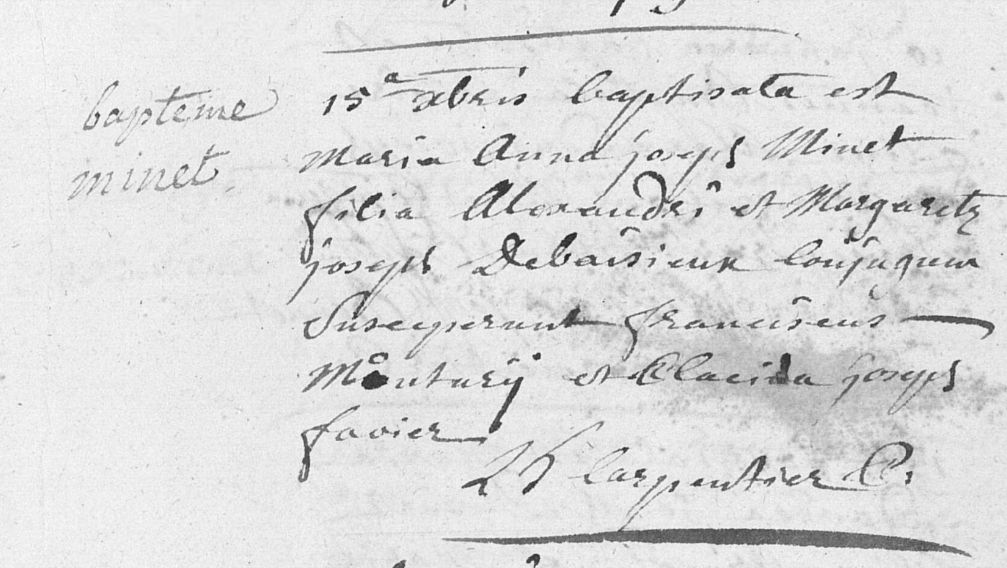 baptême
minet.
15a xbris baptisata est
Maria Anna joseph Minet
filia Alexandri et Margaritæ
joseph Debaisieux Conjugum
Susceperunt franciscus
Montury et Placida joseph
favier
Carpentier